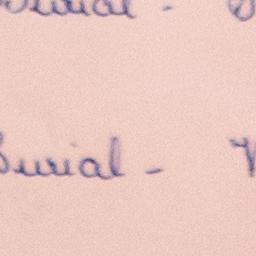 Burial -
Burial -